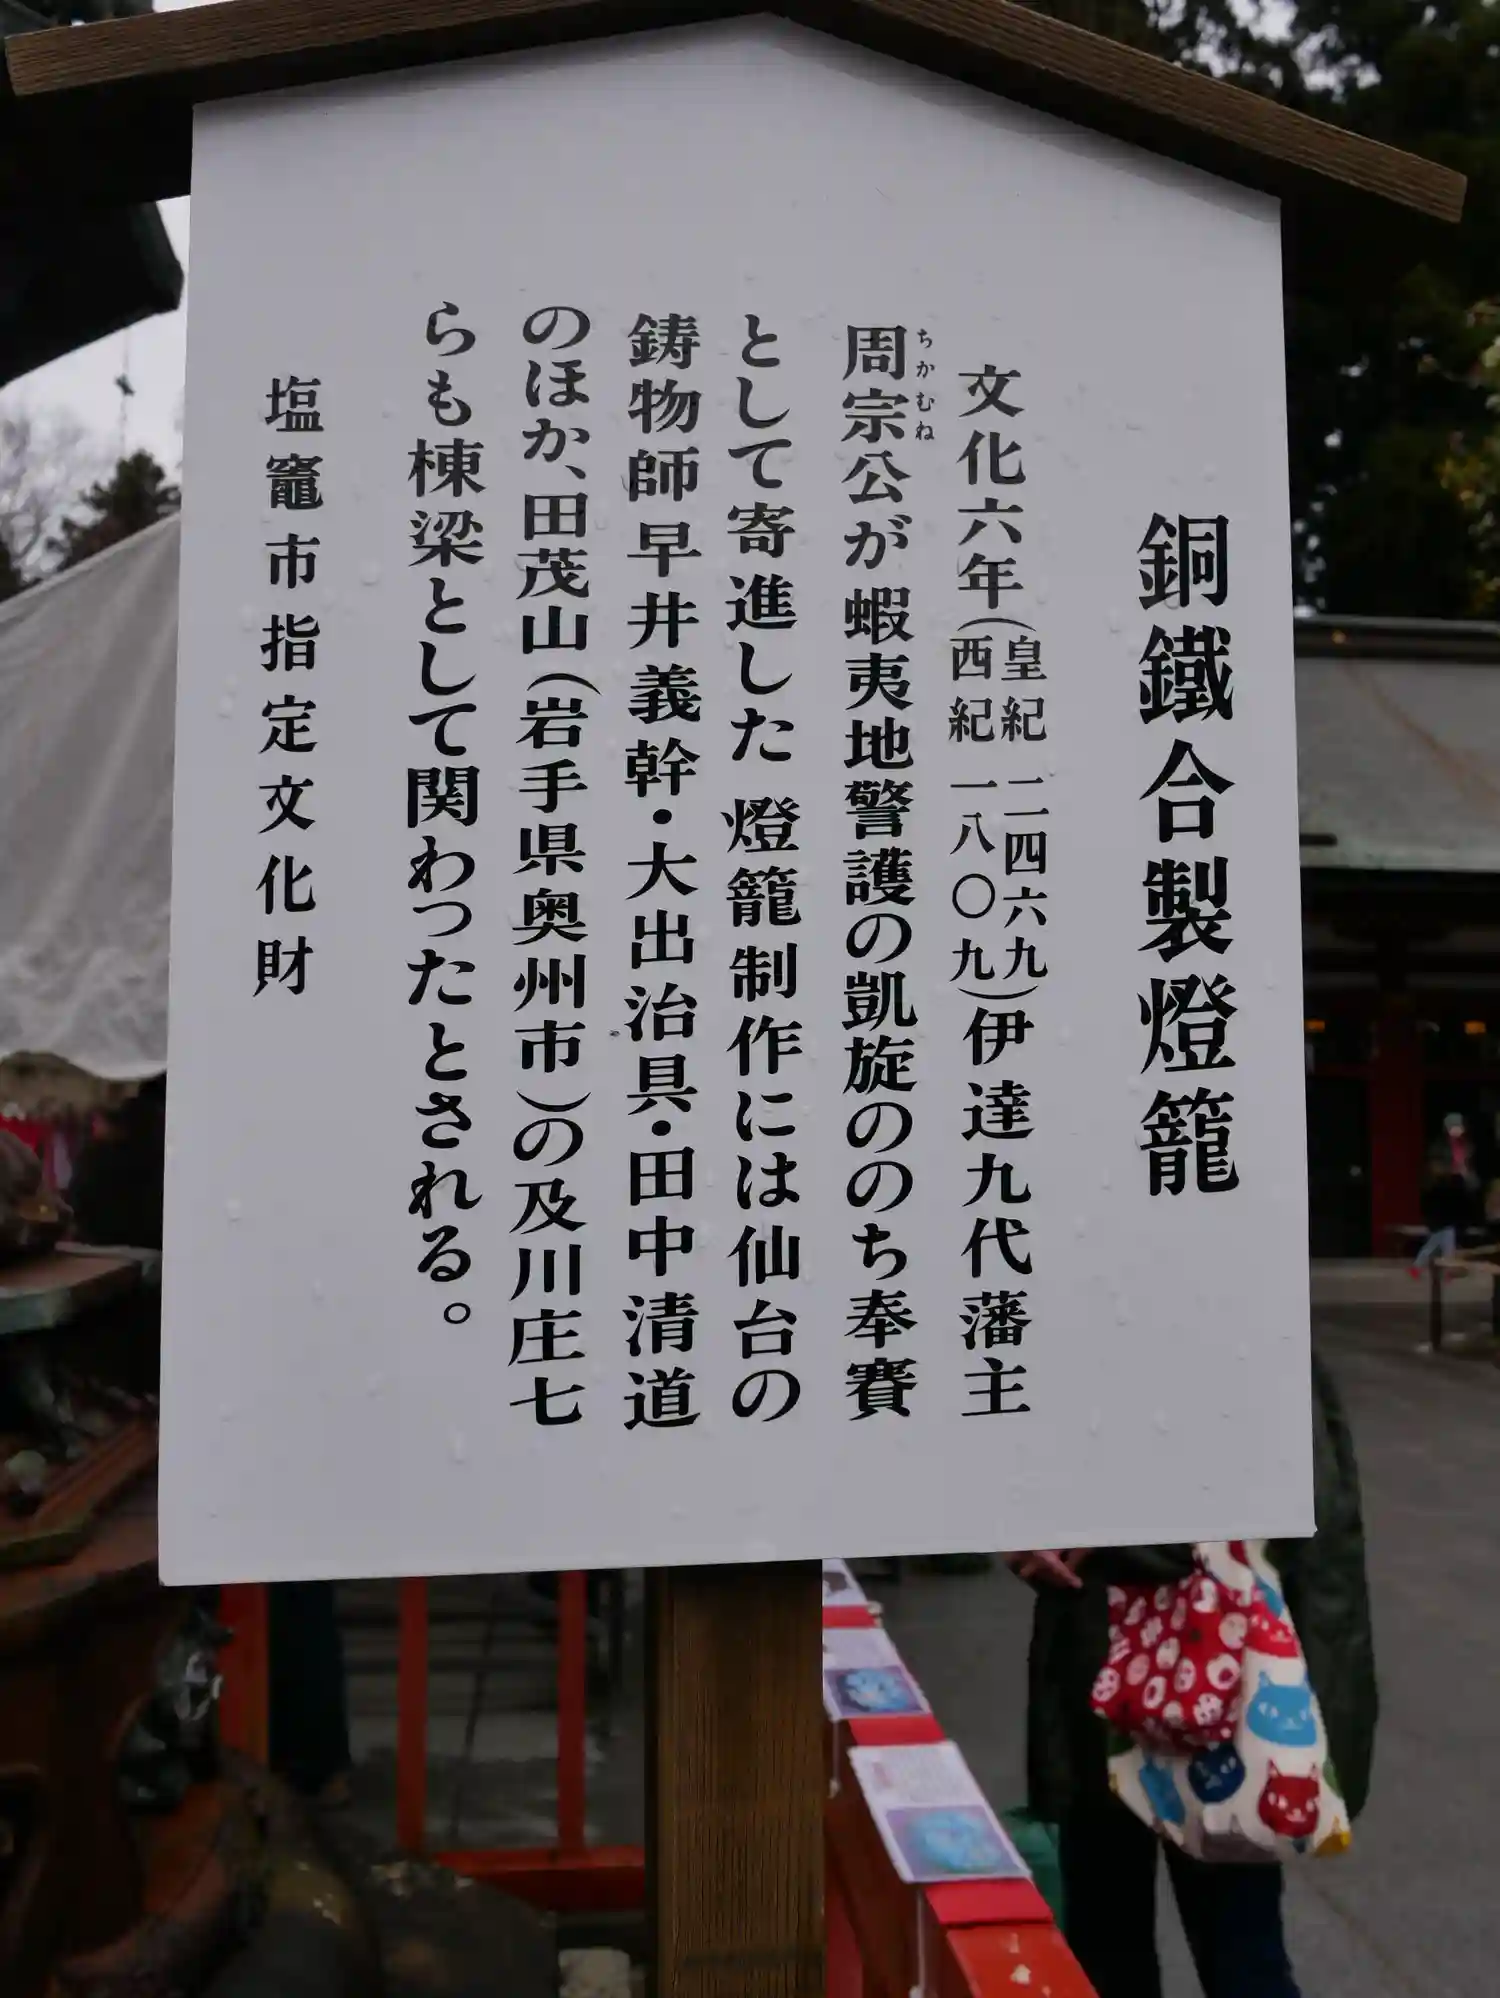 銅鐵合製燈籠
文化六年(皇紀二四六九 西紀一八〇九)伊達九代藩主
周宗公が蝦夷地警護の凱旋ののち奉賽
ちかむね
として寄進した燈籠制作には仙台の
鋳物師早井義幹・大出治具・田中清道
のほか、田茂山(岩手県奥州市)の及川庄七
らも棟梁として関わったとされる。
塩竈市指定文化財